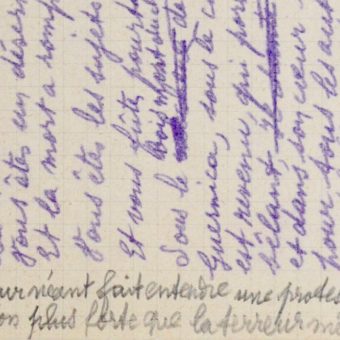 Vous êtes un désert
Et la mort a romp
Vous êtes les sujets
Et vous fûts pourta
bois mort du
Sous le de
Guernica, sous le c
est revenu, qui por
bêlant
et dans son cœur
pour tous les aut
ur néant fait entendre une protes
on plus forte que la terreur mê